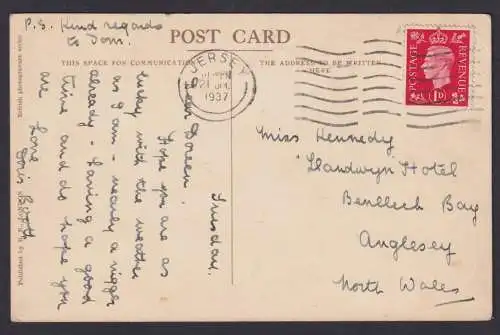 P.S. Kind regards
to Dom.
POST CARD
THIS SPACE FOR COMMUNICATION
THE ADDRESS TO BE WRITTEN
HERE
JERSEY
1937
POSTAGE
REVENUE
1D
Tuesday.
Dear Doreen,
Hope you are as
lucky with the weather
as I am - nearly a nigger
already - having a good
time and do hope you
are
Love
Doris Booth
Miss Kennedy
"Llandwyn" Hotel
Benllech Bay
Anglesey
North Wales
British photogravure series
Published by